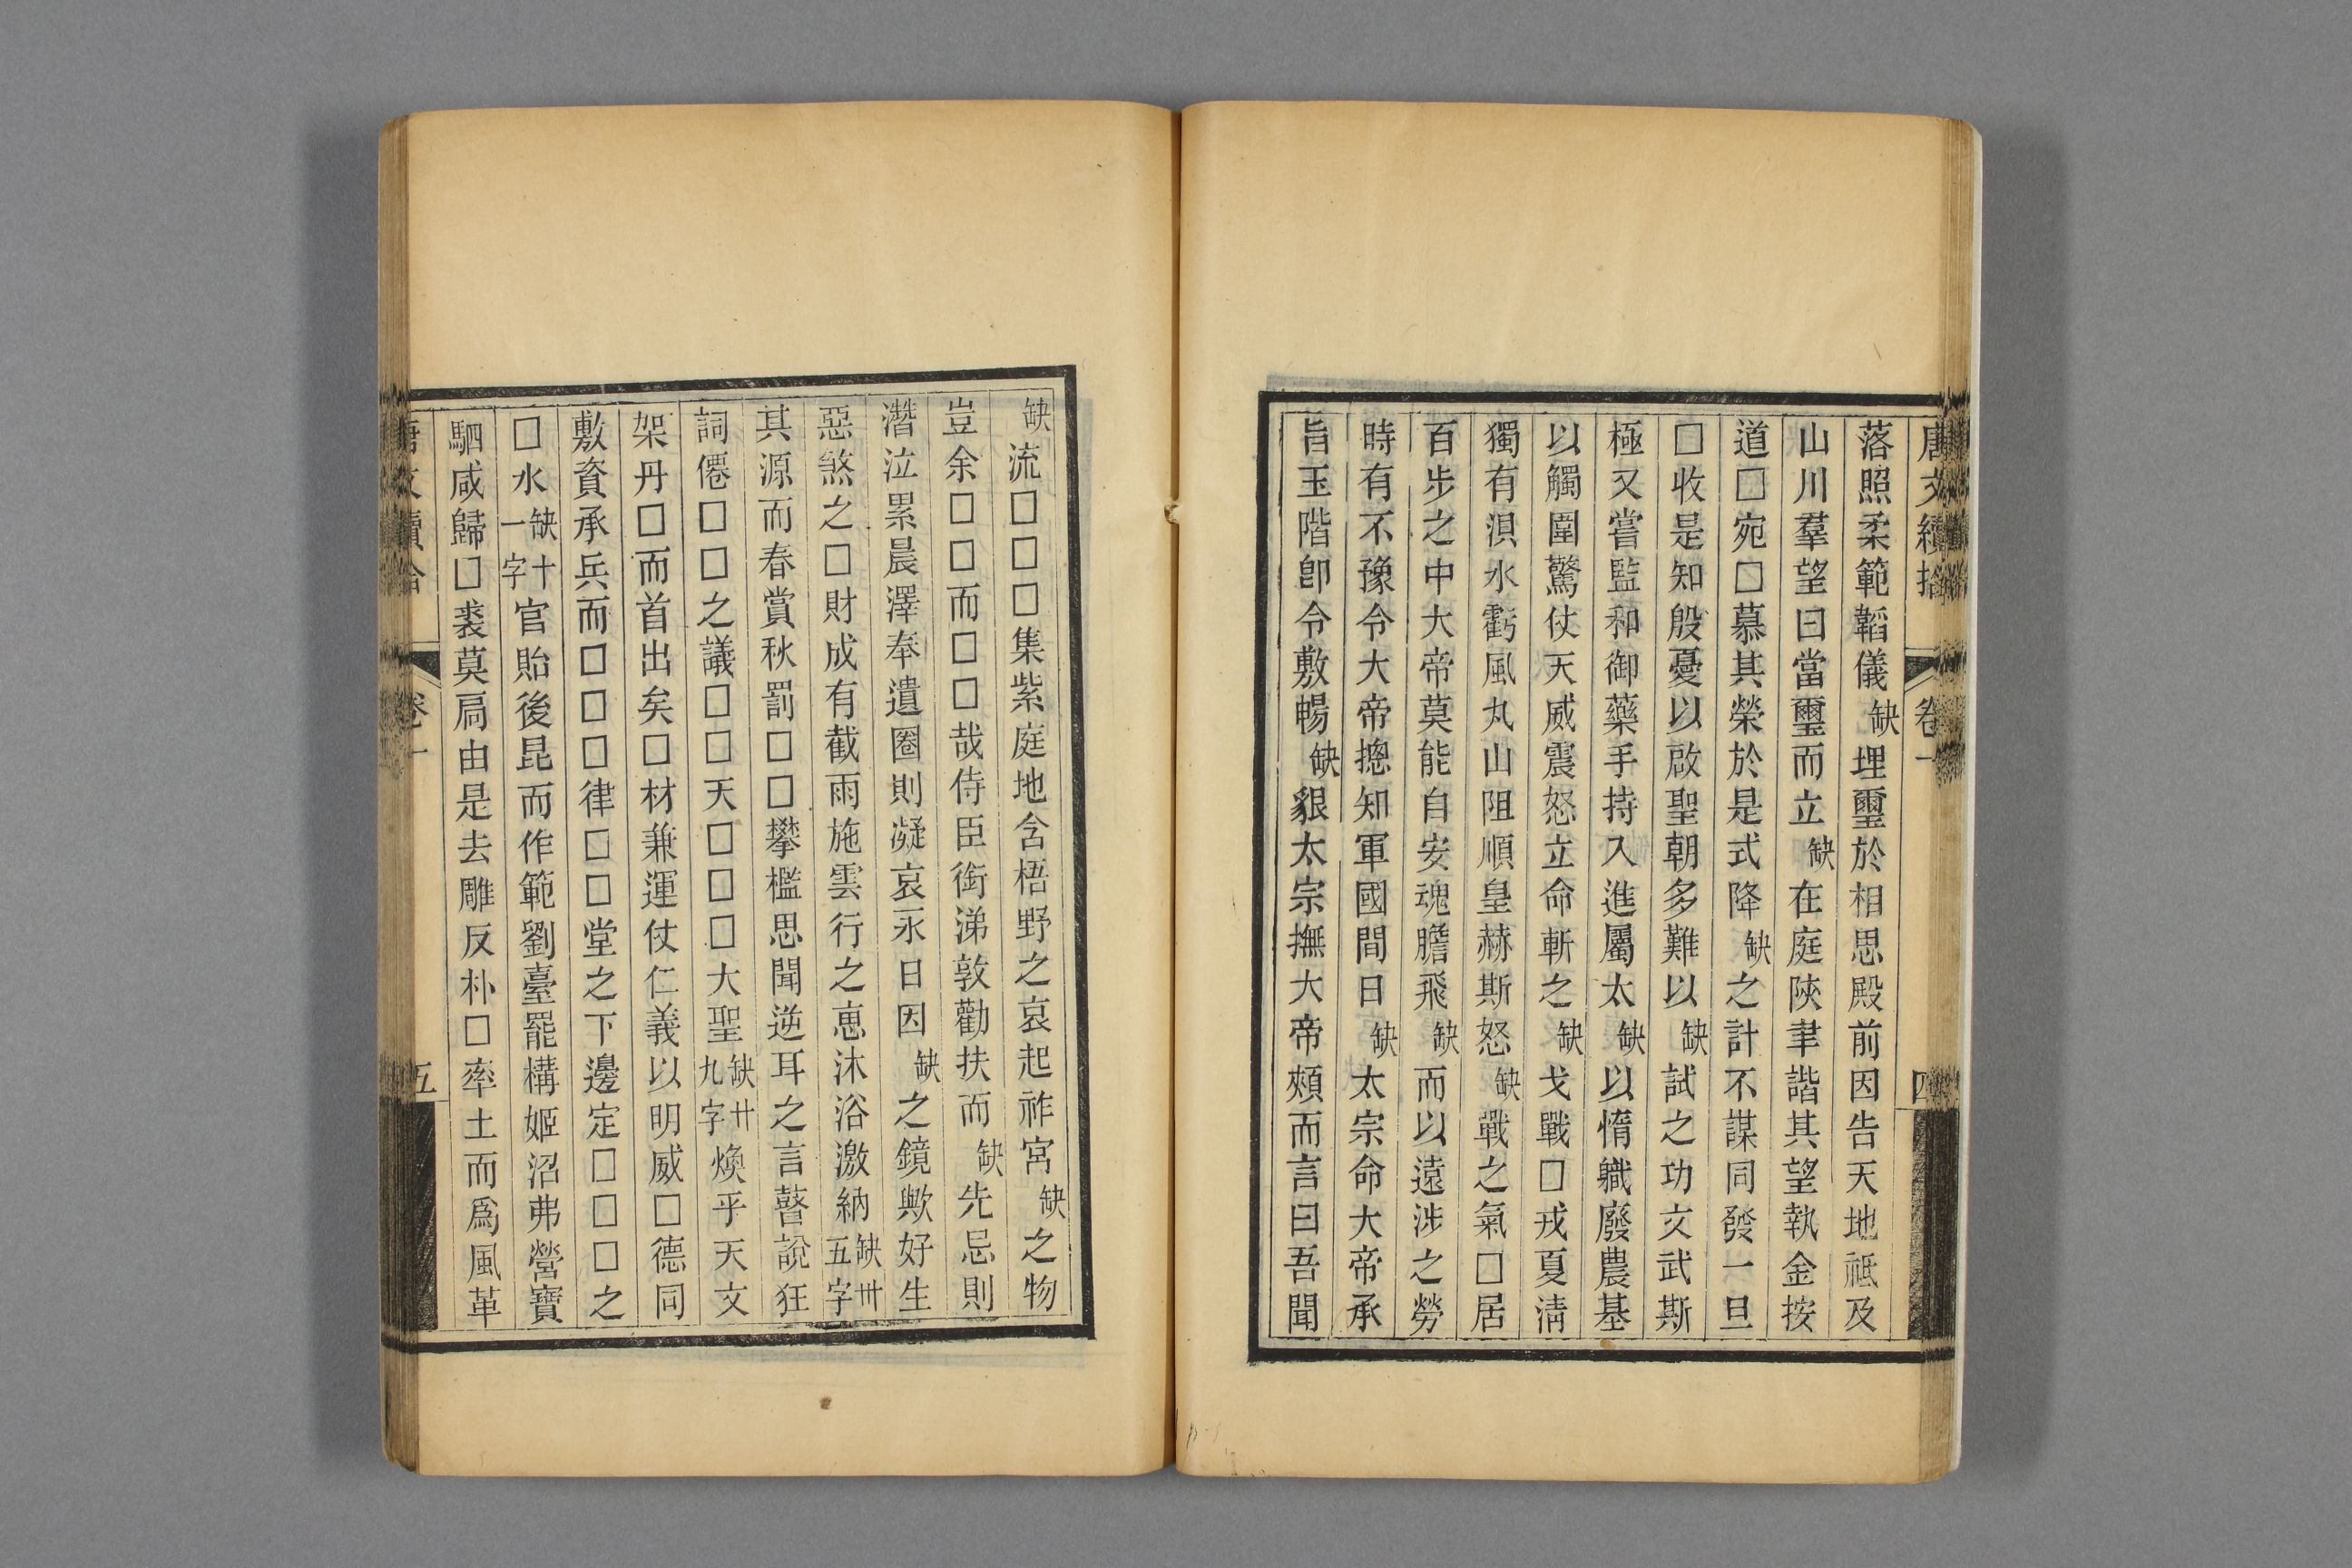 唐文續拾 卷一 四
落照柔範韜儀缺埋璽於相思殿前因告天地祗及
山川羣望曰當璽而立缺在庭陝聿諧其望執金按
道□宛□慕其榮於是式降缺之計不謀同發一旦
□收是知殷憂以啟聖朝多難以缺試之功文武斯
極又嘗監和御藥手持入進屬太缺以惰軄廢農基
以觸圍驚仗天威震怒立命斬之缺戈戰□戎夏淸
獨有浿水虧風丸山阻順皇赫斯怒缺戰之氣□居
百步之中大帝莫能自安魂膽飛缺而以遠涉之勞
時有不豫令大帝摠知軍國間日缺太宗命大帝承
旨玉階卽令敷暢缺貇太宗撫大帝頰而言曰吾聞
缺流□□□集紫庭地含梧野之哀起祚宮缺之物
豈余□□而□□哉侍臣銜涕敦勸扶而缺先忌則
潛泣累晨澤奉遺圈則凝哀永日因缺之鏡歟好生
惡煞之□財成有截雨施雲行之惠沐浴激納缺卌五字
其源而春賞秋罰□□攀檻思聞逆耳之言瞽說狂
詞僊□□之議□□天□□□大聖缺廿九字煥乎天文
架丹□而首出矣□材兼運仗仁義以明威□德同
敷資承兵而□□□律□□堂之下邊定□□□之
□水缺十一字官貽後昆而作範劉臺罷構姬沼弗營寶
駟咸歸□裘莫扃由是去雕反朴□率土而爲風革
唐文續拾 卷一 五